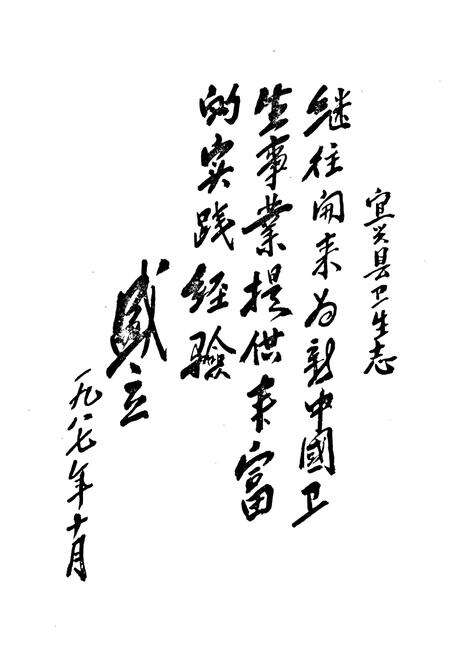 宜兴县卫生志
继往开来为新中國卫
生事業提供丰富
的实践经验
盛立
一九八七年十月